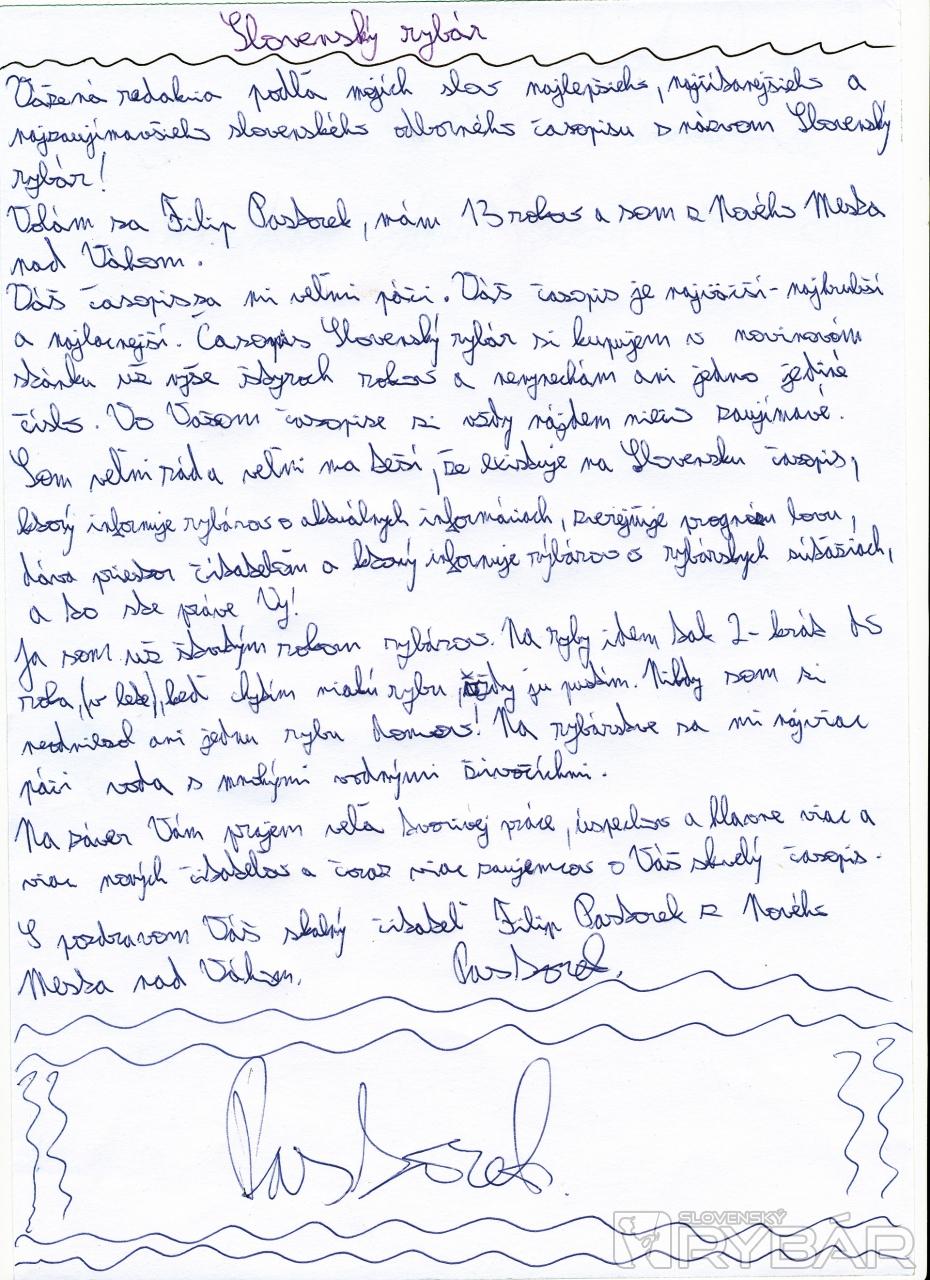 Slovenský rybár
Vážená redakcia podľa mojích slov najlepšieho, najčítanejšieho a
najzaujímavšieho slovenského odborného časopisu s názvom Slovenský
rybár!
Volám sa Filip Pastorek, mám 13 rokov a som z Nového Mesta
nad Váhom.
Váš časopis sa mi veľmi páči. Váš časopis je najväčší - najhrubší
a najlacnejší. Časopis Slovenský rybár si kupujem v novinovom
stánku už vyše štyroch rokov a nevynechám ani jedno jediné
číslo. Vo Vašom časopise si vždy nájdem niečo zaujímavé.
Som veľmi rád a veľmi ma teší, že existuje na Slovensku časopis,
ktorý informuje rybárov o aktuálnych informáciach, zverejňuje prognózu lovu,
dáva priestor čitateľom a ktorý informuje rybárov o rybárskych súťažiach,
a to ste práve Vy!
Ja som už štvrtým rokom rybárov. Na ryby idem tak 2-krát do
roka, (v lete), keď chytím malú rybu, vždy ju pustím. Nikdy som si
neodniesol ani jednu rybu domov! Na rybárstve sa mi najviac
páči voda s mnohými vodnými živočíchmi.
Na záver Vám prajem veľa tvorivej práce, úspechov a hlavne viac a
viac nových čitateľov a čoraz viac zaujemcov o Váš skvelý časopis.
S pozdravom Váš skalný čitateľ Filip Pastorek z Nového
Mesta nad Váhom. Pastorek.
Pastorek.
SLOVENSKÝ
RYBÁR